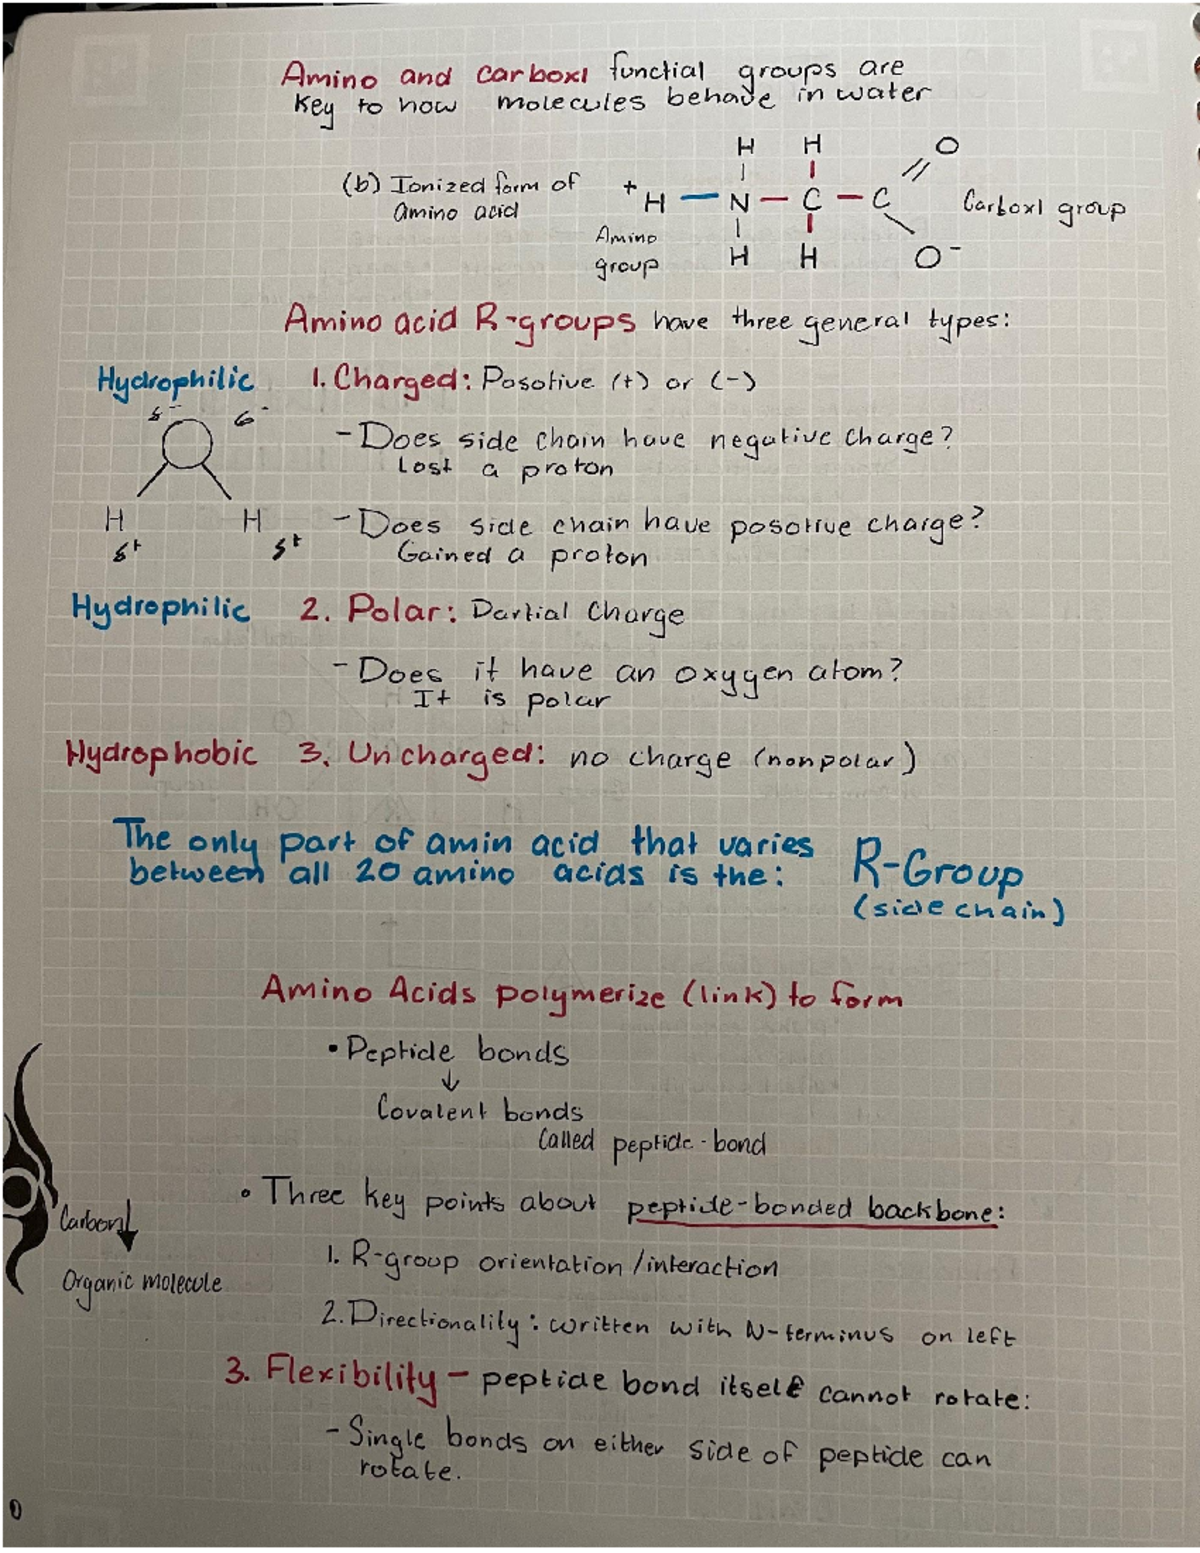 Amino and carboxl functial groups are
key to how molecules behave in water
H H O
(b) Ionized form of
amino acid
+
H — N — C — C
Carboxl group
Amino
group
H H O⁻
Amino acid R-groups have three general types:
Hydrophilic 1. Charged: Posotive (+) or (-)
δ⁻ δ⁻
- Does side chain have negative charge?
Lost a proton
H H
δ⁺ δ⁺
- Does side chain have posotive charge?
Gained a proton
Hydrophilic 2. Polar: Partial Charge
- Does it have an oxygen atom?
It is polar
Hydrophobic 3. Uncharged: no charge (nonpolar)
The only part of amin acid that varies
between all 20 amino acids is the:
R-Group
(side chain)
Amino Acids polymerize (link) to form
• Peptide bonds
↓
Covalent bonds
Called peptide-bond
• Three key points about peptide-bonded backbone:
Carbon ↓
Organic molecule
1. R-group orientation/interaction
2. Directionality: written with N-terminus on left
3. Flexibility - peptide bond itself cannot rotate:
- Single bonds on either side of peptide can
rotate.